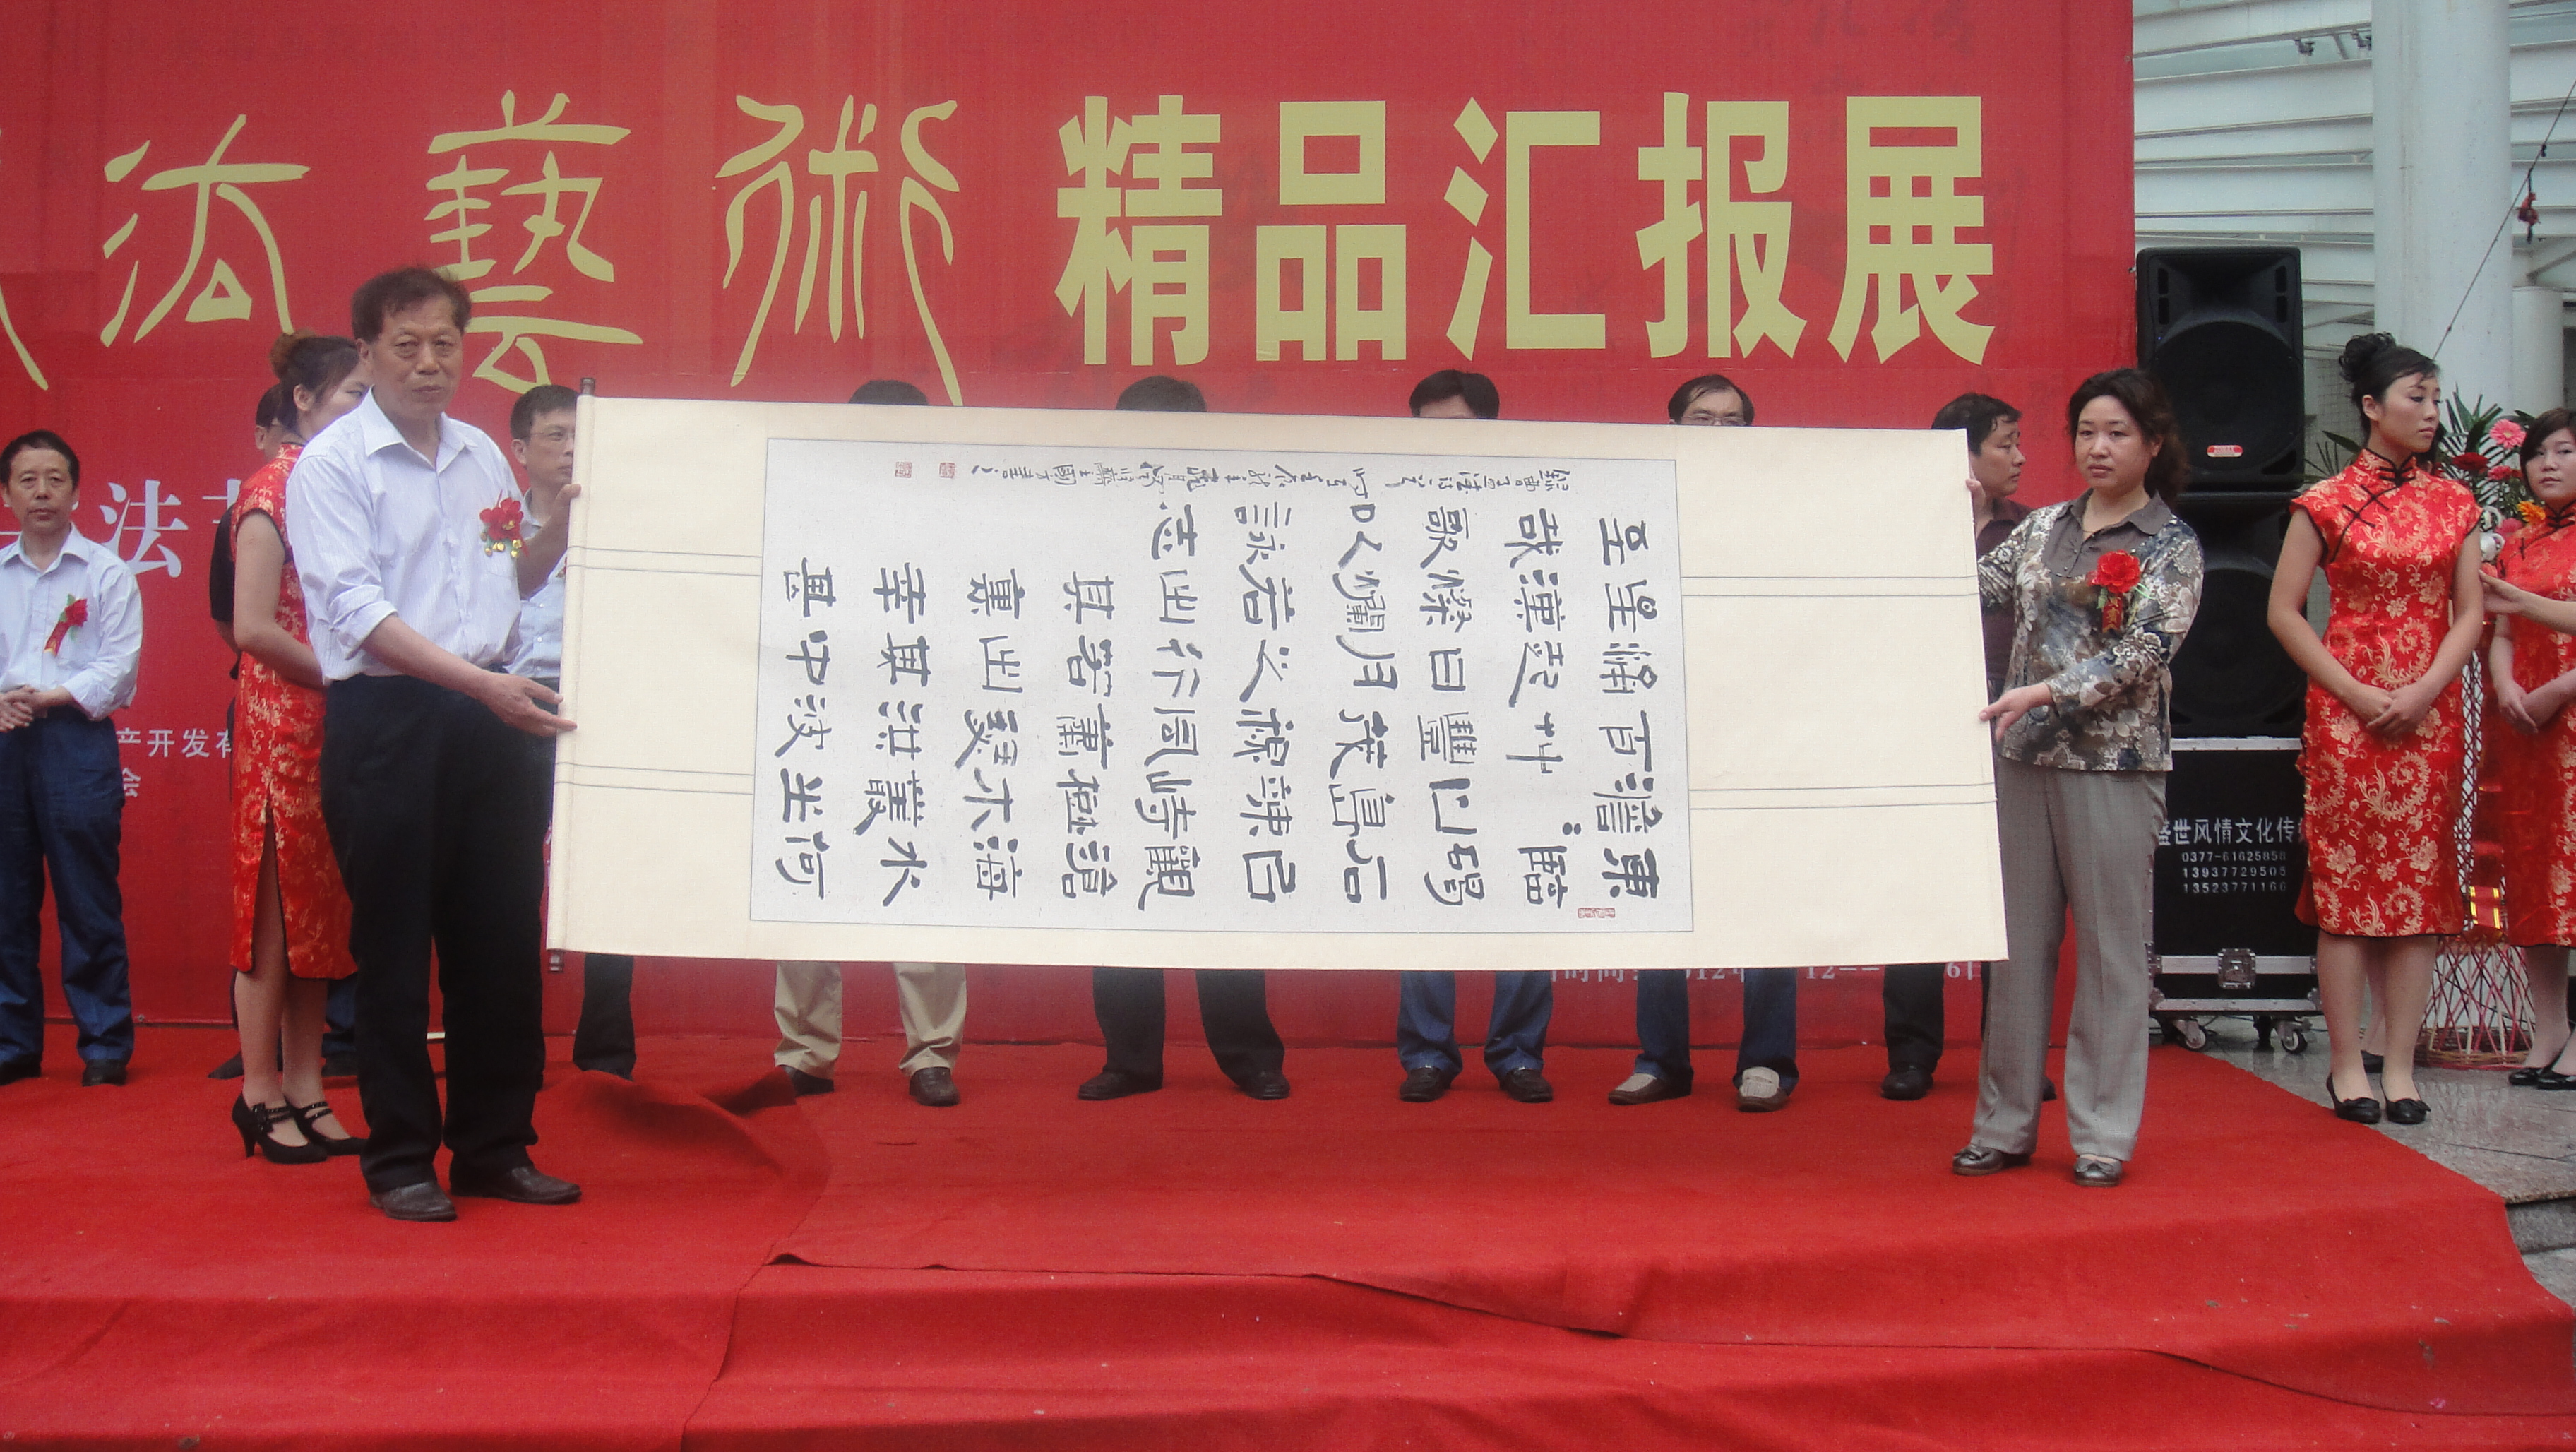 法藝術精品汇报展
法
产开发有
会
東臨碣石以觀滄海水何
澹〻山島竦峙樹木叢生
百草豐茂秋風蕭瑟洪波
涌起日月之行若出其中
星漢燦爛若出其裏幸甚
至哉歌以詠志
时间:
12--
6日
盛世风情文化传
0377-61625858
13937729505
13523771166